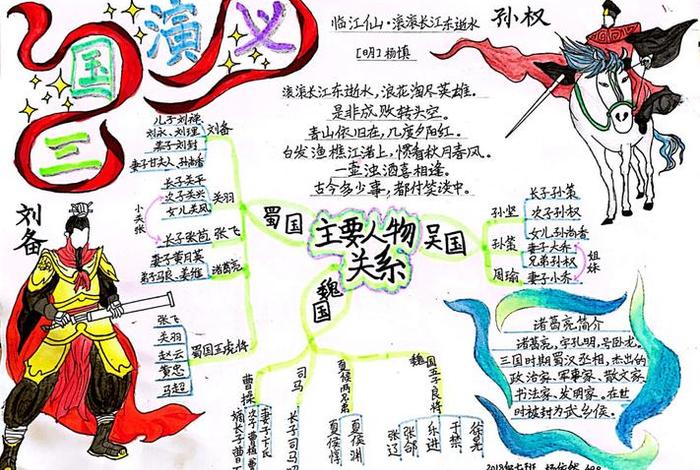 三国演义
临江仙·滚滚长江东逝水
[明]杨慎
滚滚长江东逝水，浪花淘尽英雄。
是非成败转头空。
青山依旧在，几度夕阳红。
白发渔樵江渚上，惯看秋月春风。
一壶浊酒喜相逢。
古今多少事，都付笑谈中。
孙权
刘备
主要人物
关系
蜀国
刘备
儿子刘禅
刘永、刘理
养子刘封
妻子甘夫人、孙尚香
关羽
长子关平
次子关兴
女儿关凤
小关张
张飞
长子张苞
诸葛亮
妻子黄月英
弟子马良、姜维
蜀国五虎将
张飞
关羽
赵云
黄忠
马超
吴国
孙坚
长子孙策
次子孙权
女儿孙尚香
孙策
妻子大乔
兄弟孙权
周瑜
妻子小乔
姐妹
魏国
曹操
妻子卞氏
次子曹植
嫡长子曹丕
司马
长子司马昭
夏侯两兄弟
夏侯惇
夏侯渊
魏国五子良将
张辽
张郃
乐进
于禁
徐晃
诸葛亮简介
诸葛亮，字孔明，号卧龙。
三国时期蜀汉丞相，杰出的
政治家、军事家、散文家、
书法家、发明家。在世
时被封为武乡侯。